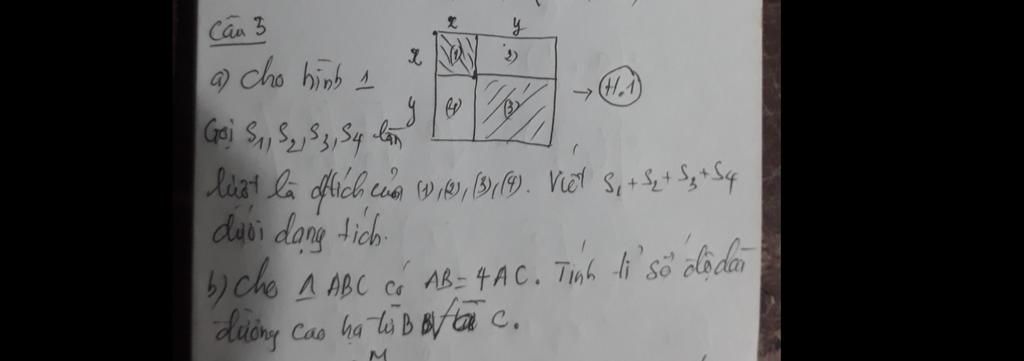 Câu 3
x y
x (1) 2)
a) Cho hình 1
y (4) (3) → H.1
Gọi S1, S2, S3, S4 lần
lượt là d/tích của (1), (2), (3), (4). Viết S1 + S2 + S3 + S4
dưới dạng tích.
b) Cho Δ ABC có AB = 4AC. Tính tỉ số độ dài
đường cao hạ từ B và từ C.
M